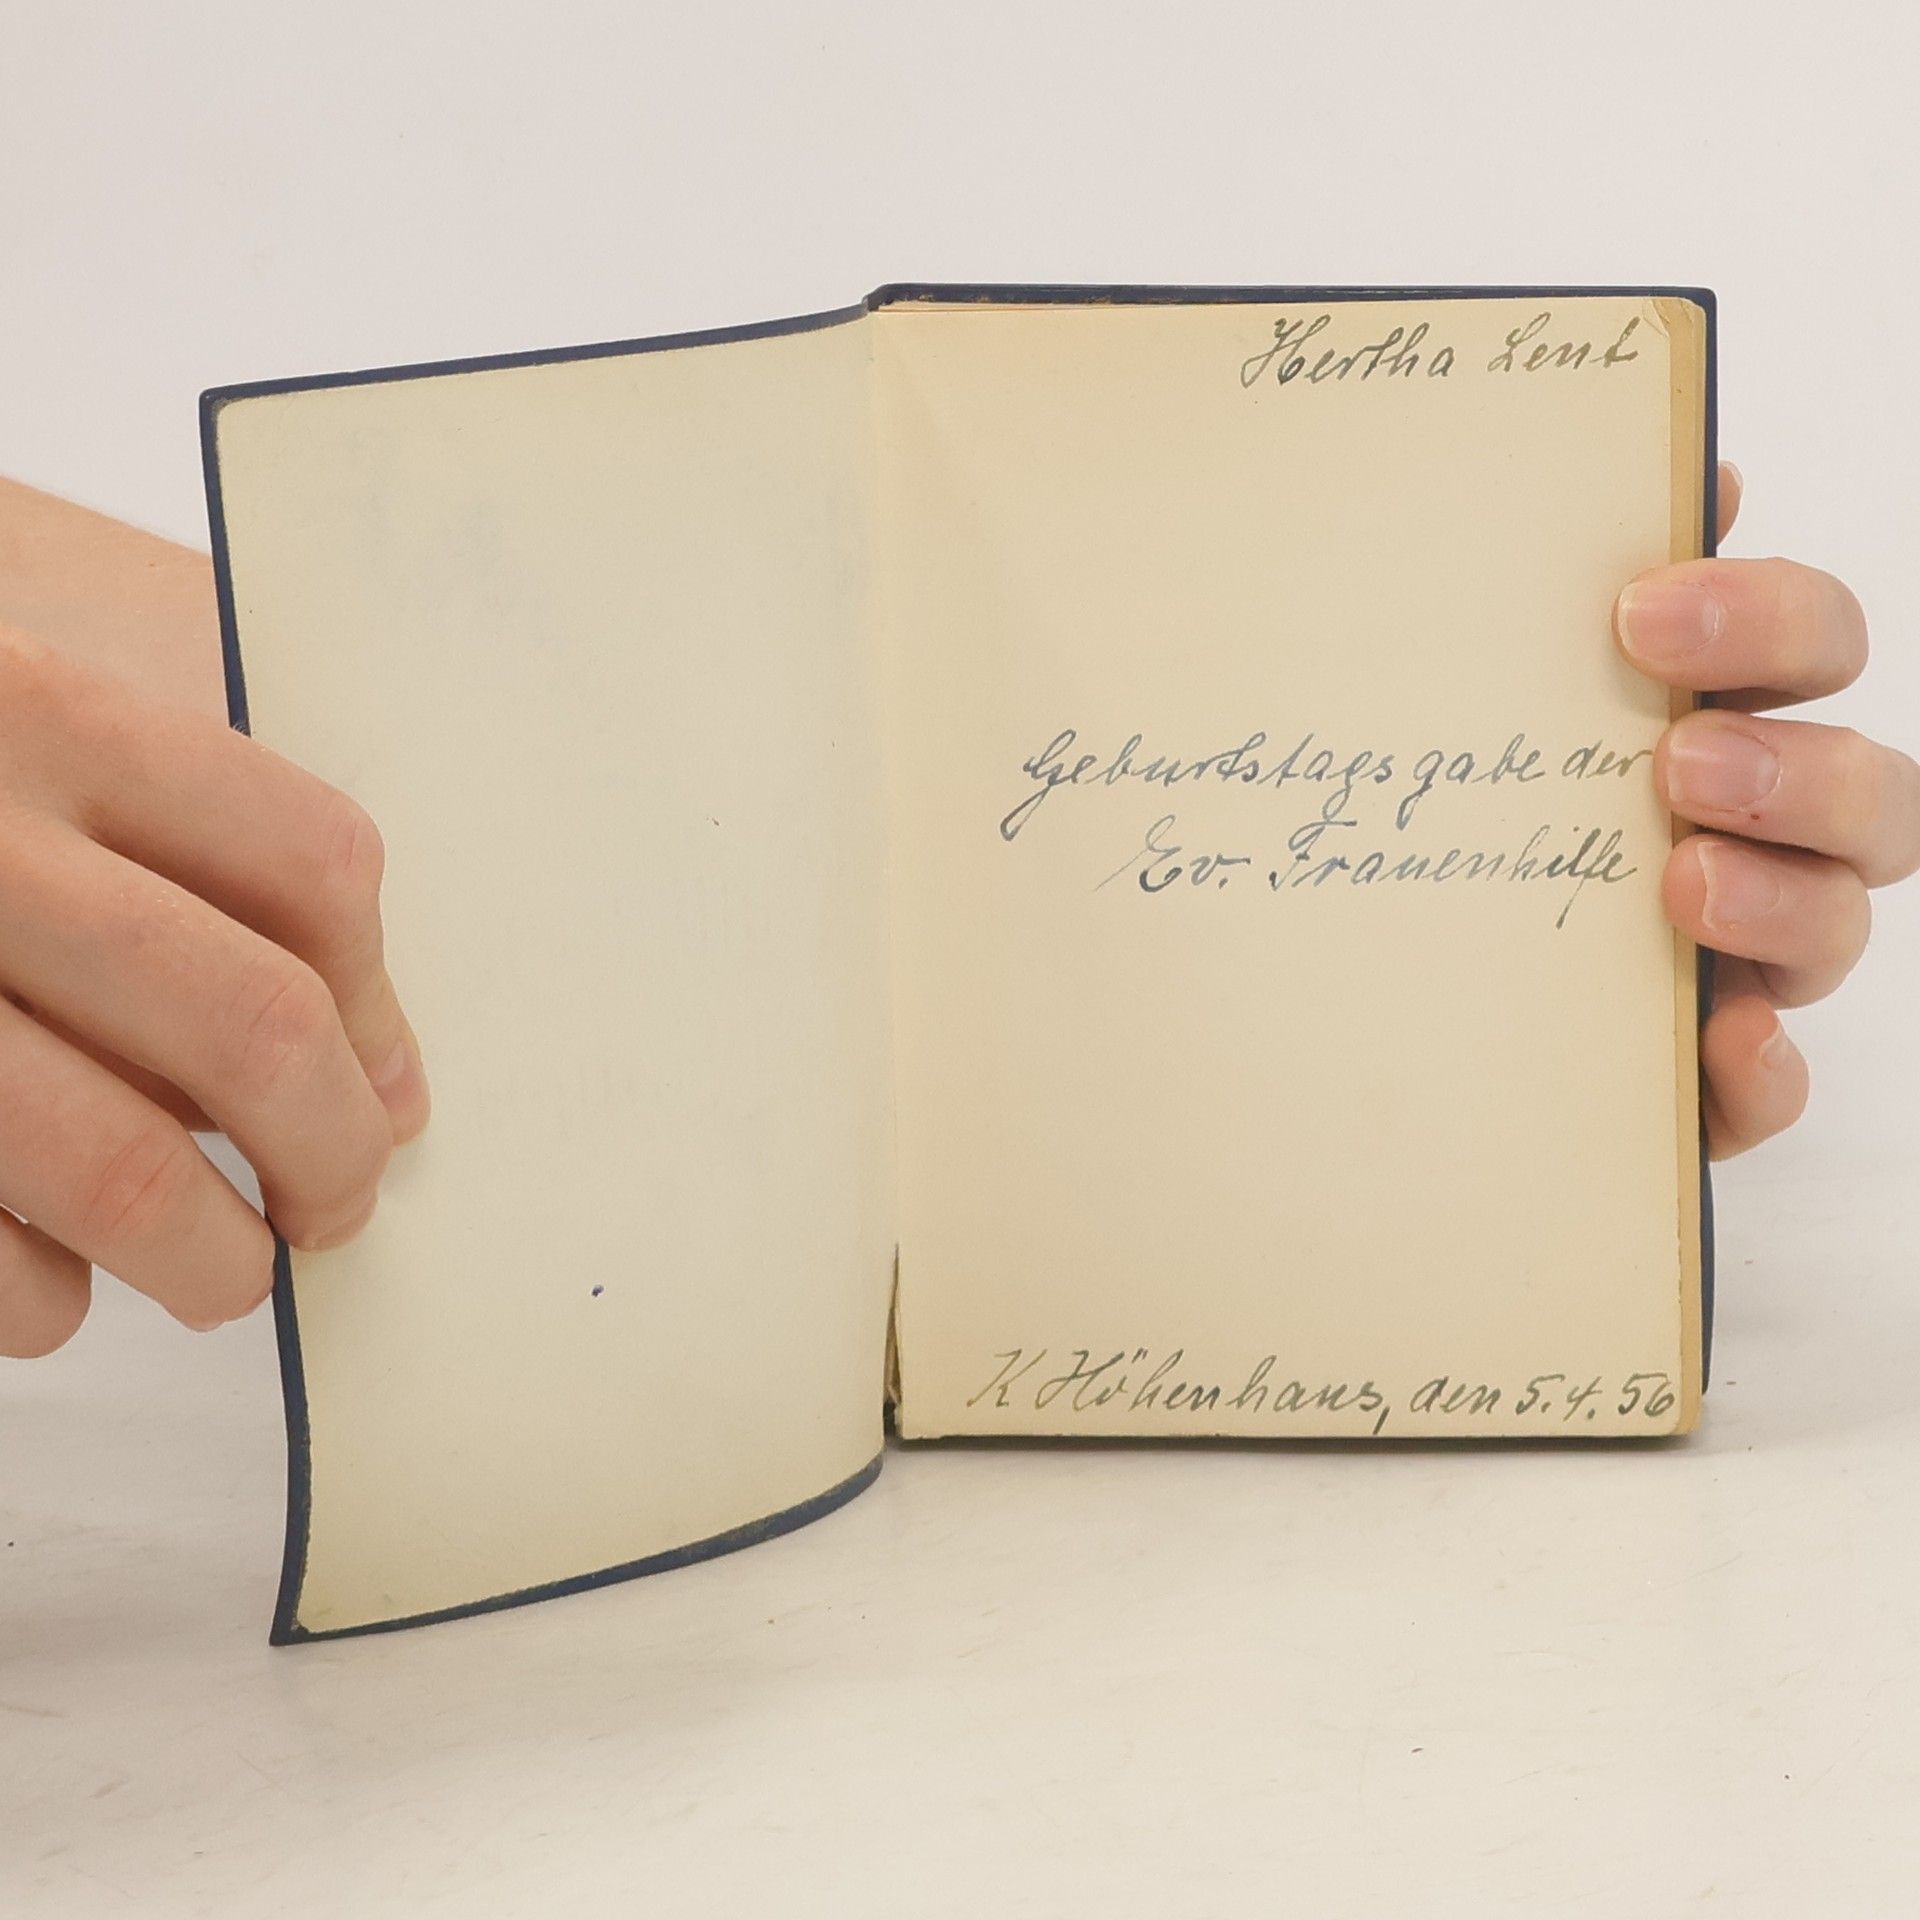 Hertha Lent
Geburtstagsgabe der
Ev. Frauenhilfe
K Höhenhaus, den 5.4.56